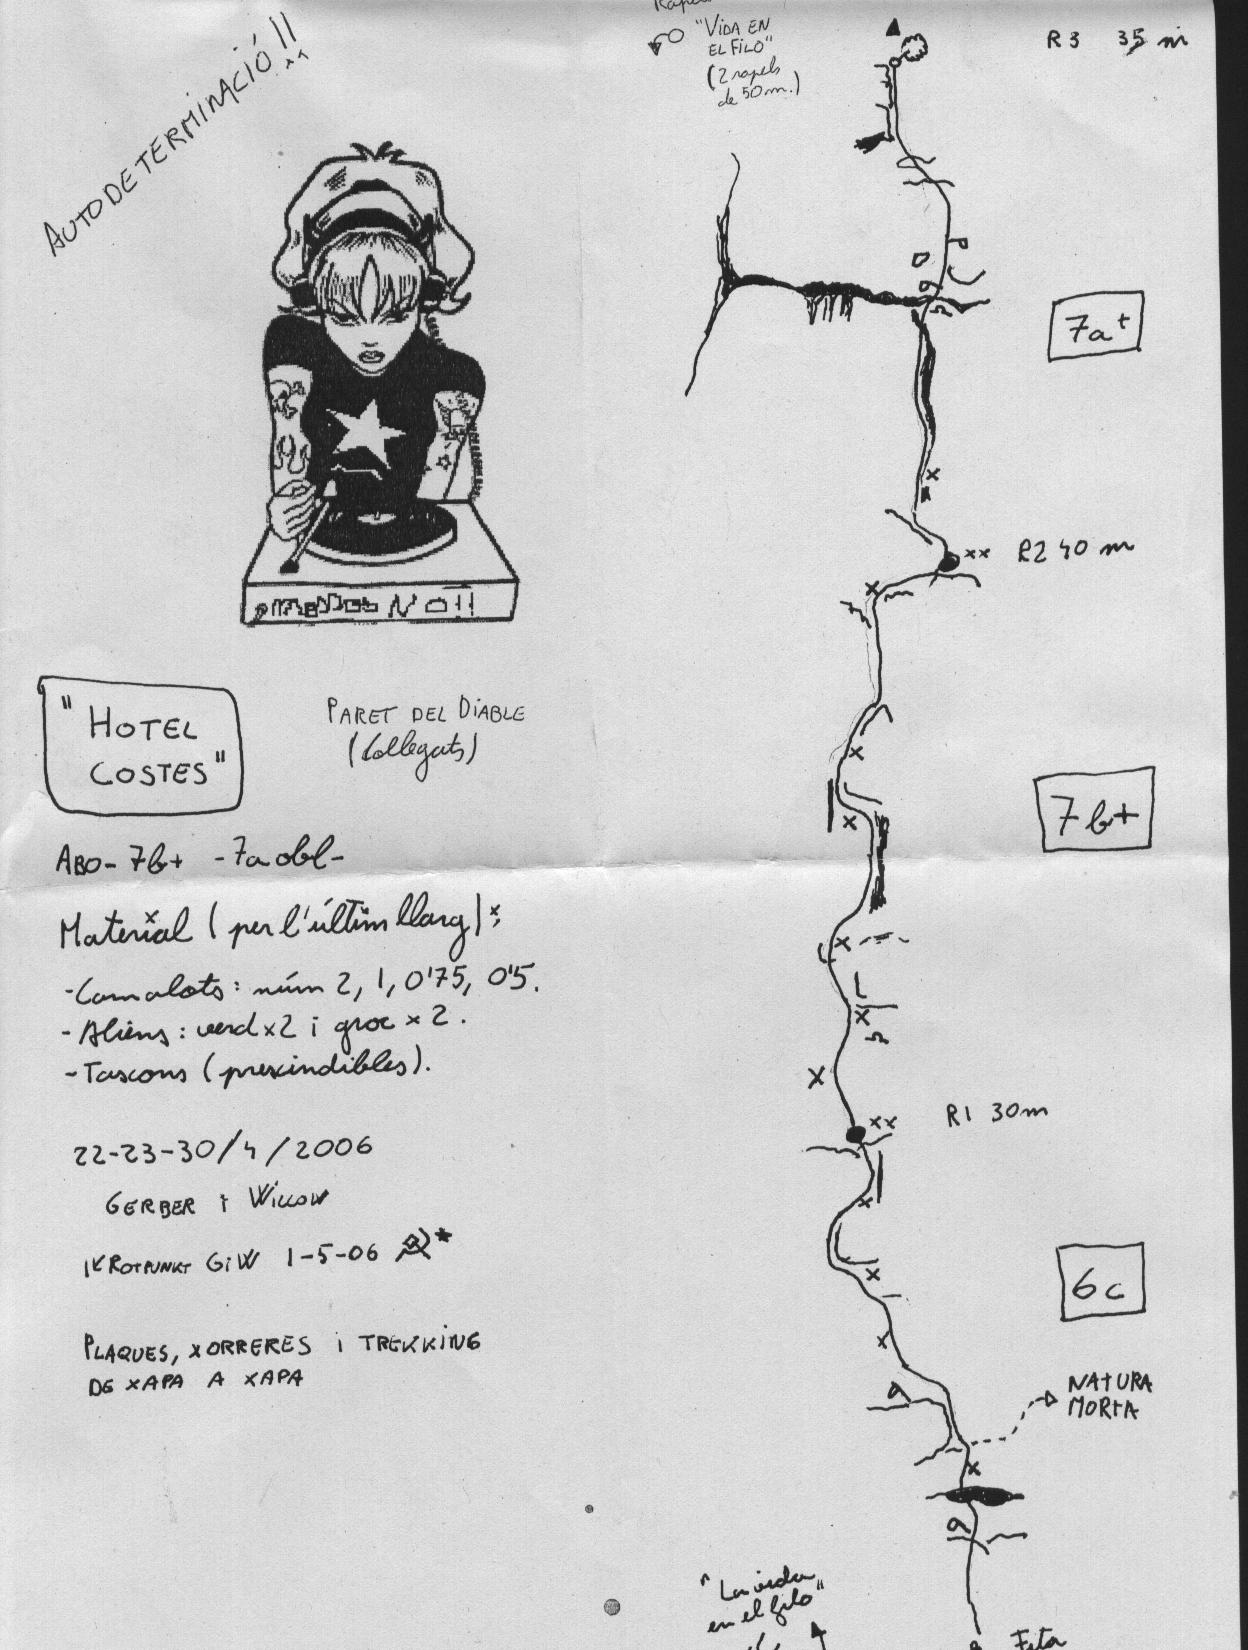 AUTODETERMINACIÓ!!
"HOTEL
COSTES"
PARET DEL DIABLE
(Collegats)
ABO- 7b+ -7a obl-
Material (per l'últim llarg):
-Camalots: núm 2, 1, 0'75, 0'5.
-Aliens: verd x2 i groc x 2.
-Tascons (prescindibles).
22-23-30/4/2006
GERBER i WILLOW
1r ROTPUNKT GiW 1-5-06
PLAQUES, XORRERES i TREKKING
DE XAPA A XAPA
"VIDA EN
EL FILO"
(2 rapels
de 50 m.)
R3 35 m
7a+
xx R2 40 m
7b+
xx R1 30m
6c
NATURA
MORTA
"La vida
en el filo"